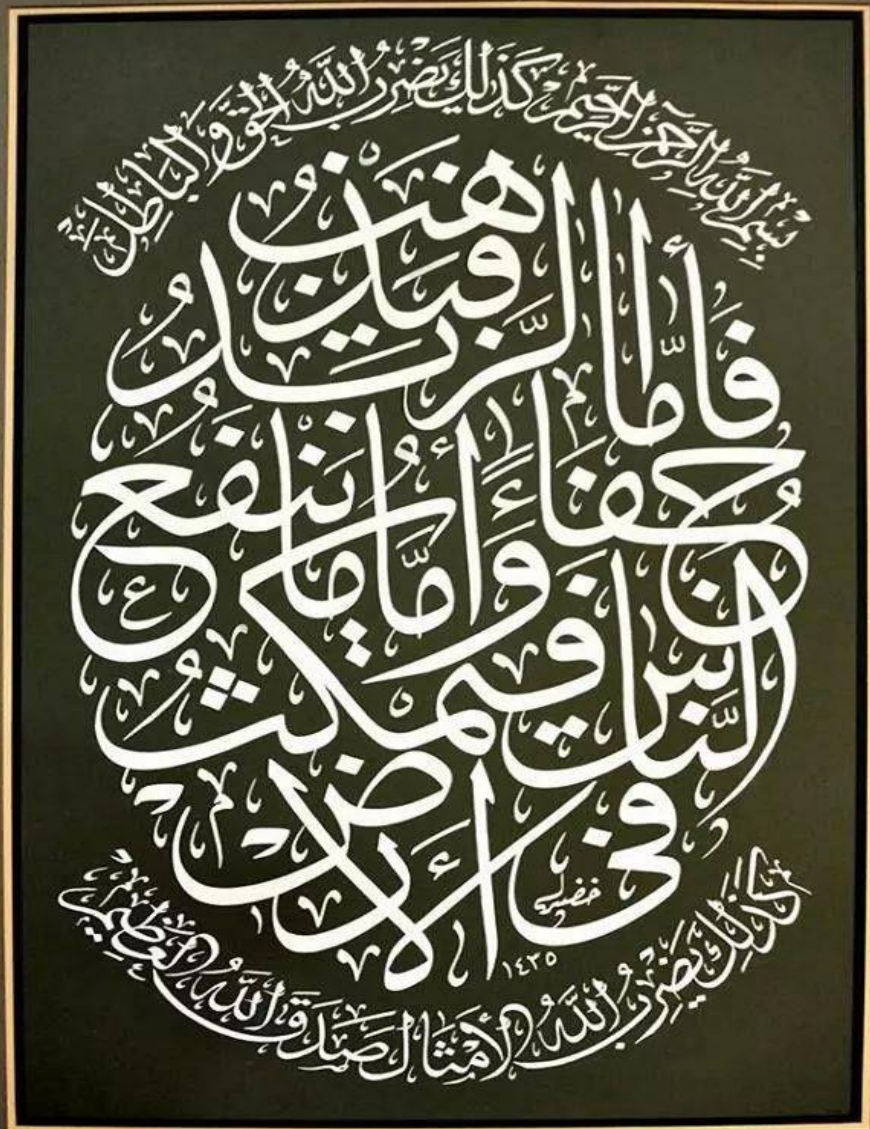 بِسْمِ اللَّهِ الرَّحْمَنِ الرَّحِيمِ كَذَلِكَ يَضْرِبُ اللَّهُ الْحَقَّ وَالْبَاطِلَ
فَأَمَّا الزَّبَدُ فَيَذْهَبُ
جُفَاءً وَأَمَّا مَا يَنفَعُ
النَّاسَ فَيَمْكُثُ
فِي الْأَرْضِ
كَذَلِكَ يَضْرِبُ اللَّهُ الْأَمْثَالَ صَدَقَ اللَّهُ الْعَظِيمُ
١٤٣٥